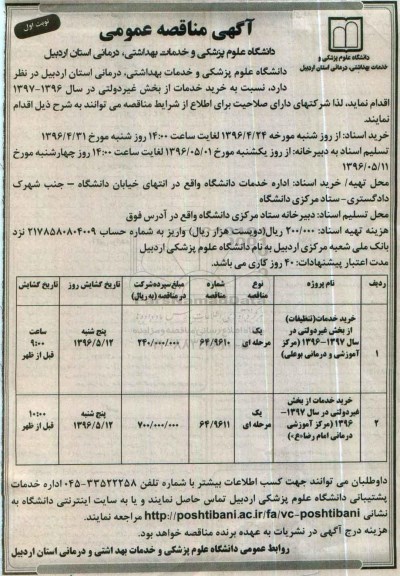 نوبت اول
آگهی مناقصه عمومی
دانشگاه علوم پزشکی و خدمات بهداشتی، درمانی استان اردبیل
دانشگاه علوم پزشکی و
خدمات بهداشتی، درمانی استان اردبیل
دانشگاه علوم پزشکی و خدمات بهداشتی، درمانی استان اردبیل در نظر
دارد، نسبت به خرید خدمات از بخش غیردولتی در سال ۱۳۹۶-۱۳۹۷
اقدام نماید، لذا شرکتهای دارای صلاحیت برای اطلاع از شرایط مناقصه می توانند به شرح ذیل اقدام
نمایند.
خرید اسناد: از روز شنبه مورخه ۱۳۹۶/۴/۲۴ لغایت ساعت ۱۴:۰۰ روز شنبه مورخ ۱۳۹۶/۴/۳۱
تسلیم اسناد به دبیرخانه: از روز یکشنبه مورخ ۱۳۹۶/۰۵/۰۱ لغایت ساعت ۱۴:۰۰ روز چهارشنبه مورخ
۱۳۹۶/۰۵/۱۱
محل تهیه/ خرید اسناد: اداره خدمات دانشگاه واقع در انتهای خیابان دانشگاه – جنب شهرک
دادگستری- ستاد مرکزی دانشگاه
محل تسلیم اسناد: دبیرخانه ستاد مرکزی دانشگاه واقع در آدرس فوق
هزینه تهیه اسناد: ۲۰۰/۰۰۰ ریال(دویست هزار ریال) واریز به شماره حساب ۲۱۷۸۵۸۰۸۰۴۰۰۹ نزد
بانک ملی شعبه مرکزی اردبیل به نام دانشگاه علوم پزشکی اردبیل
مدت اعتبار پیشنهادات: ۴۰ روز کاری می باشد.
ردیف نام پروژه نوع مناقصه شماره مناقصه مبلغ سپرده شرکت در مناقصه (به ریال) تاریخ گشایش روز تاریخ گشایش
۱ خرید خدمات(تنظیفات) از بخش غیردولتی در سال ۱۳۹۷-۱۳۹۶ (مرکز آموزشی و درمانی بوعلی) یک مرحله ای ۶۴/۹۶۱۰ ۲۴۰/۰۰۰/۰۰۰ پنج شنبه ۱۳۹۶/۵/۱۲ ساعت ۹:۰۰ قبل از ظهر
۲ خرید خدمات از بخش غیردولتی در سال ۱۳۹۷-۱۳۹۶ (مرکز آموزشی درمانی امام رضا«ع») یک مرحله ای ۶۴/۹۶۱۱ ۷۰۰/۰۰۰/۰۰۰ پنج شنبه ۱۳۹۶/۵/۱۲ ۱۰:۰۰ قبل از ظهر
داوطلبان می توانند جهت کسب اطلاعات بیشتر با شماره تلفن ۳۳۵۲۲۲۵۸-۰۴۵ اداره خدمات
پشتیبانی دانشگاه علوم پزشکی اردبیل تماس حاصل نمایند و یا به سایت اینترنتی دانشگاه به
نشانی http://poshtibani.ac.ir/fa/vc-poshtibani مراجعه نمایند.
هزینه درج آگهی در نشریات به عهده برنده مناقصه خواهد بود.
روابط عمومی دانشگاه علوم پزشکی و خدمات بهداشتی و درمانی استان اردبیل